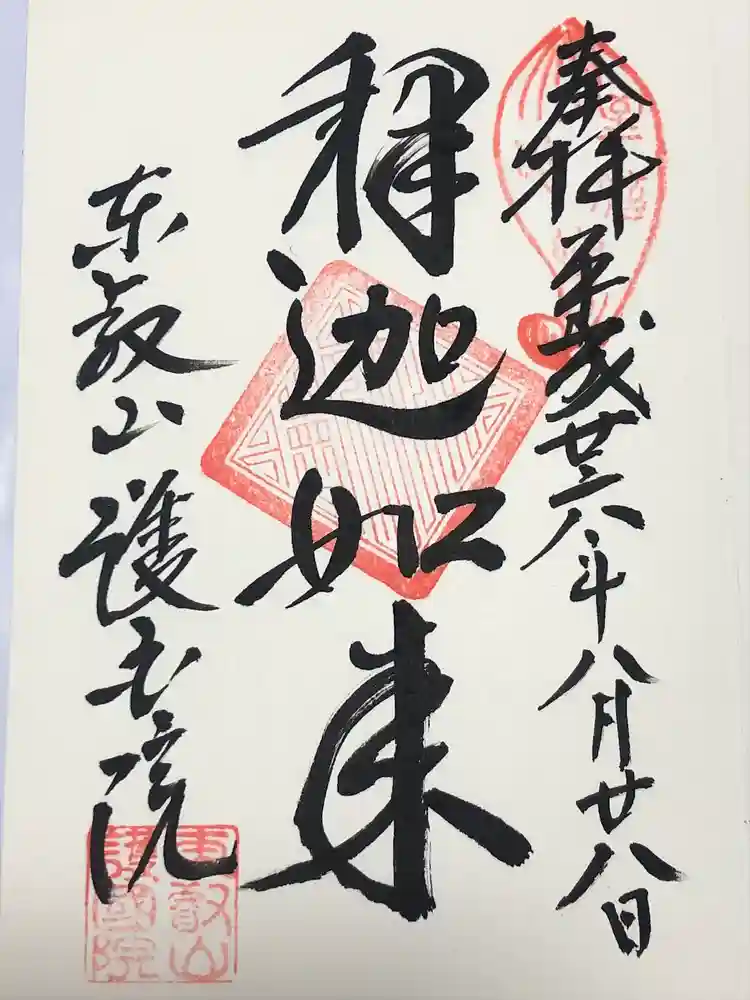 奉拝 平成廿六年八月廿八日
釋迦如来
東叡山護国院
東叡山
護國院